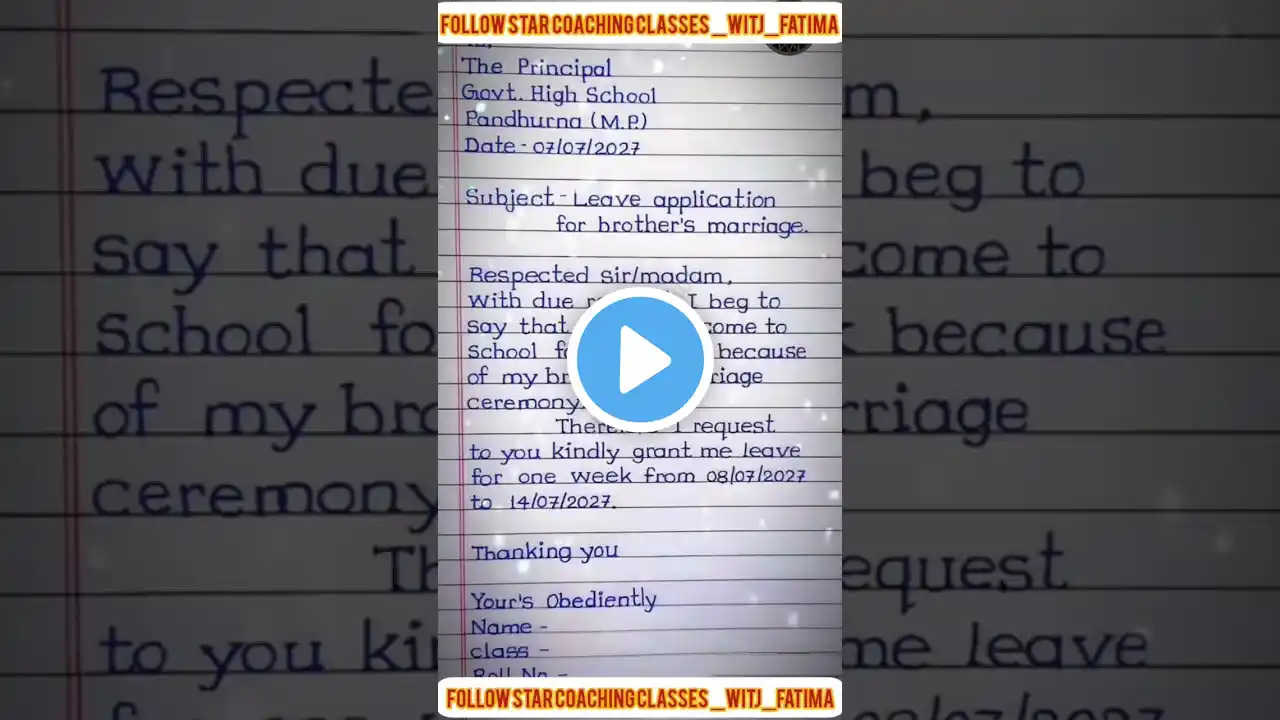 FOLLOW STAR COACHING CLASSES _WITJ_FATIMA
The Principal
Govt. High School
Pandhurna (M.P.)
Date - 07/07/2027
Subject - Leave application
for brother's marriage.
Respected sir/madam,
With due I beg to
say that come to
School because
of my
ceremony
I request
to you kindly grant me leave
for one week from 08/07/2027
to 14/07/2027.
Thanking you
Your's Obediently
Name -
class -
Roll No -
FOLLOW STAR COACHING CLASSES _WITJ_FATIMA